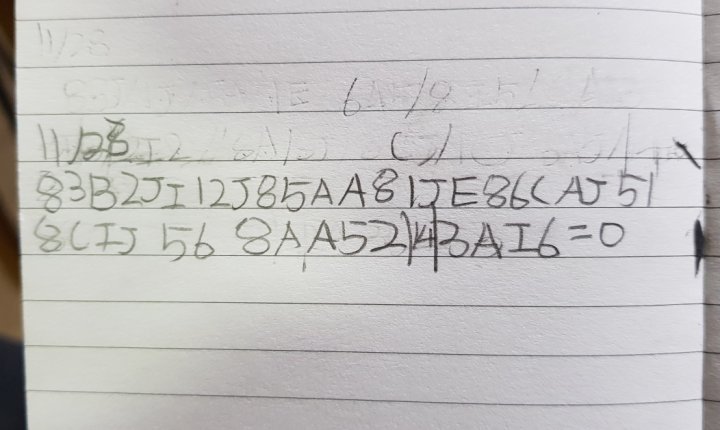 11/28
11/28
83B2JI12J85AA81JE86CAJ51
8CIJ 56 8AA52143AI6=0